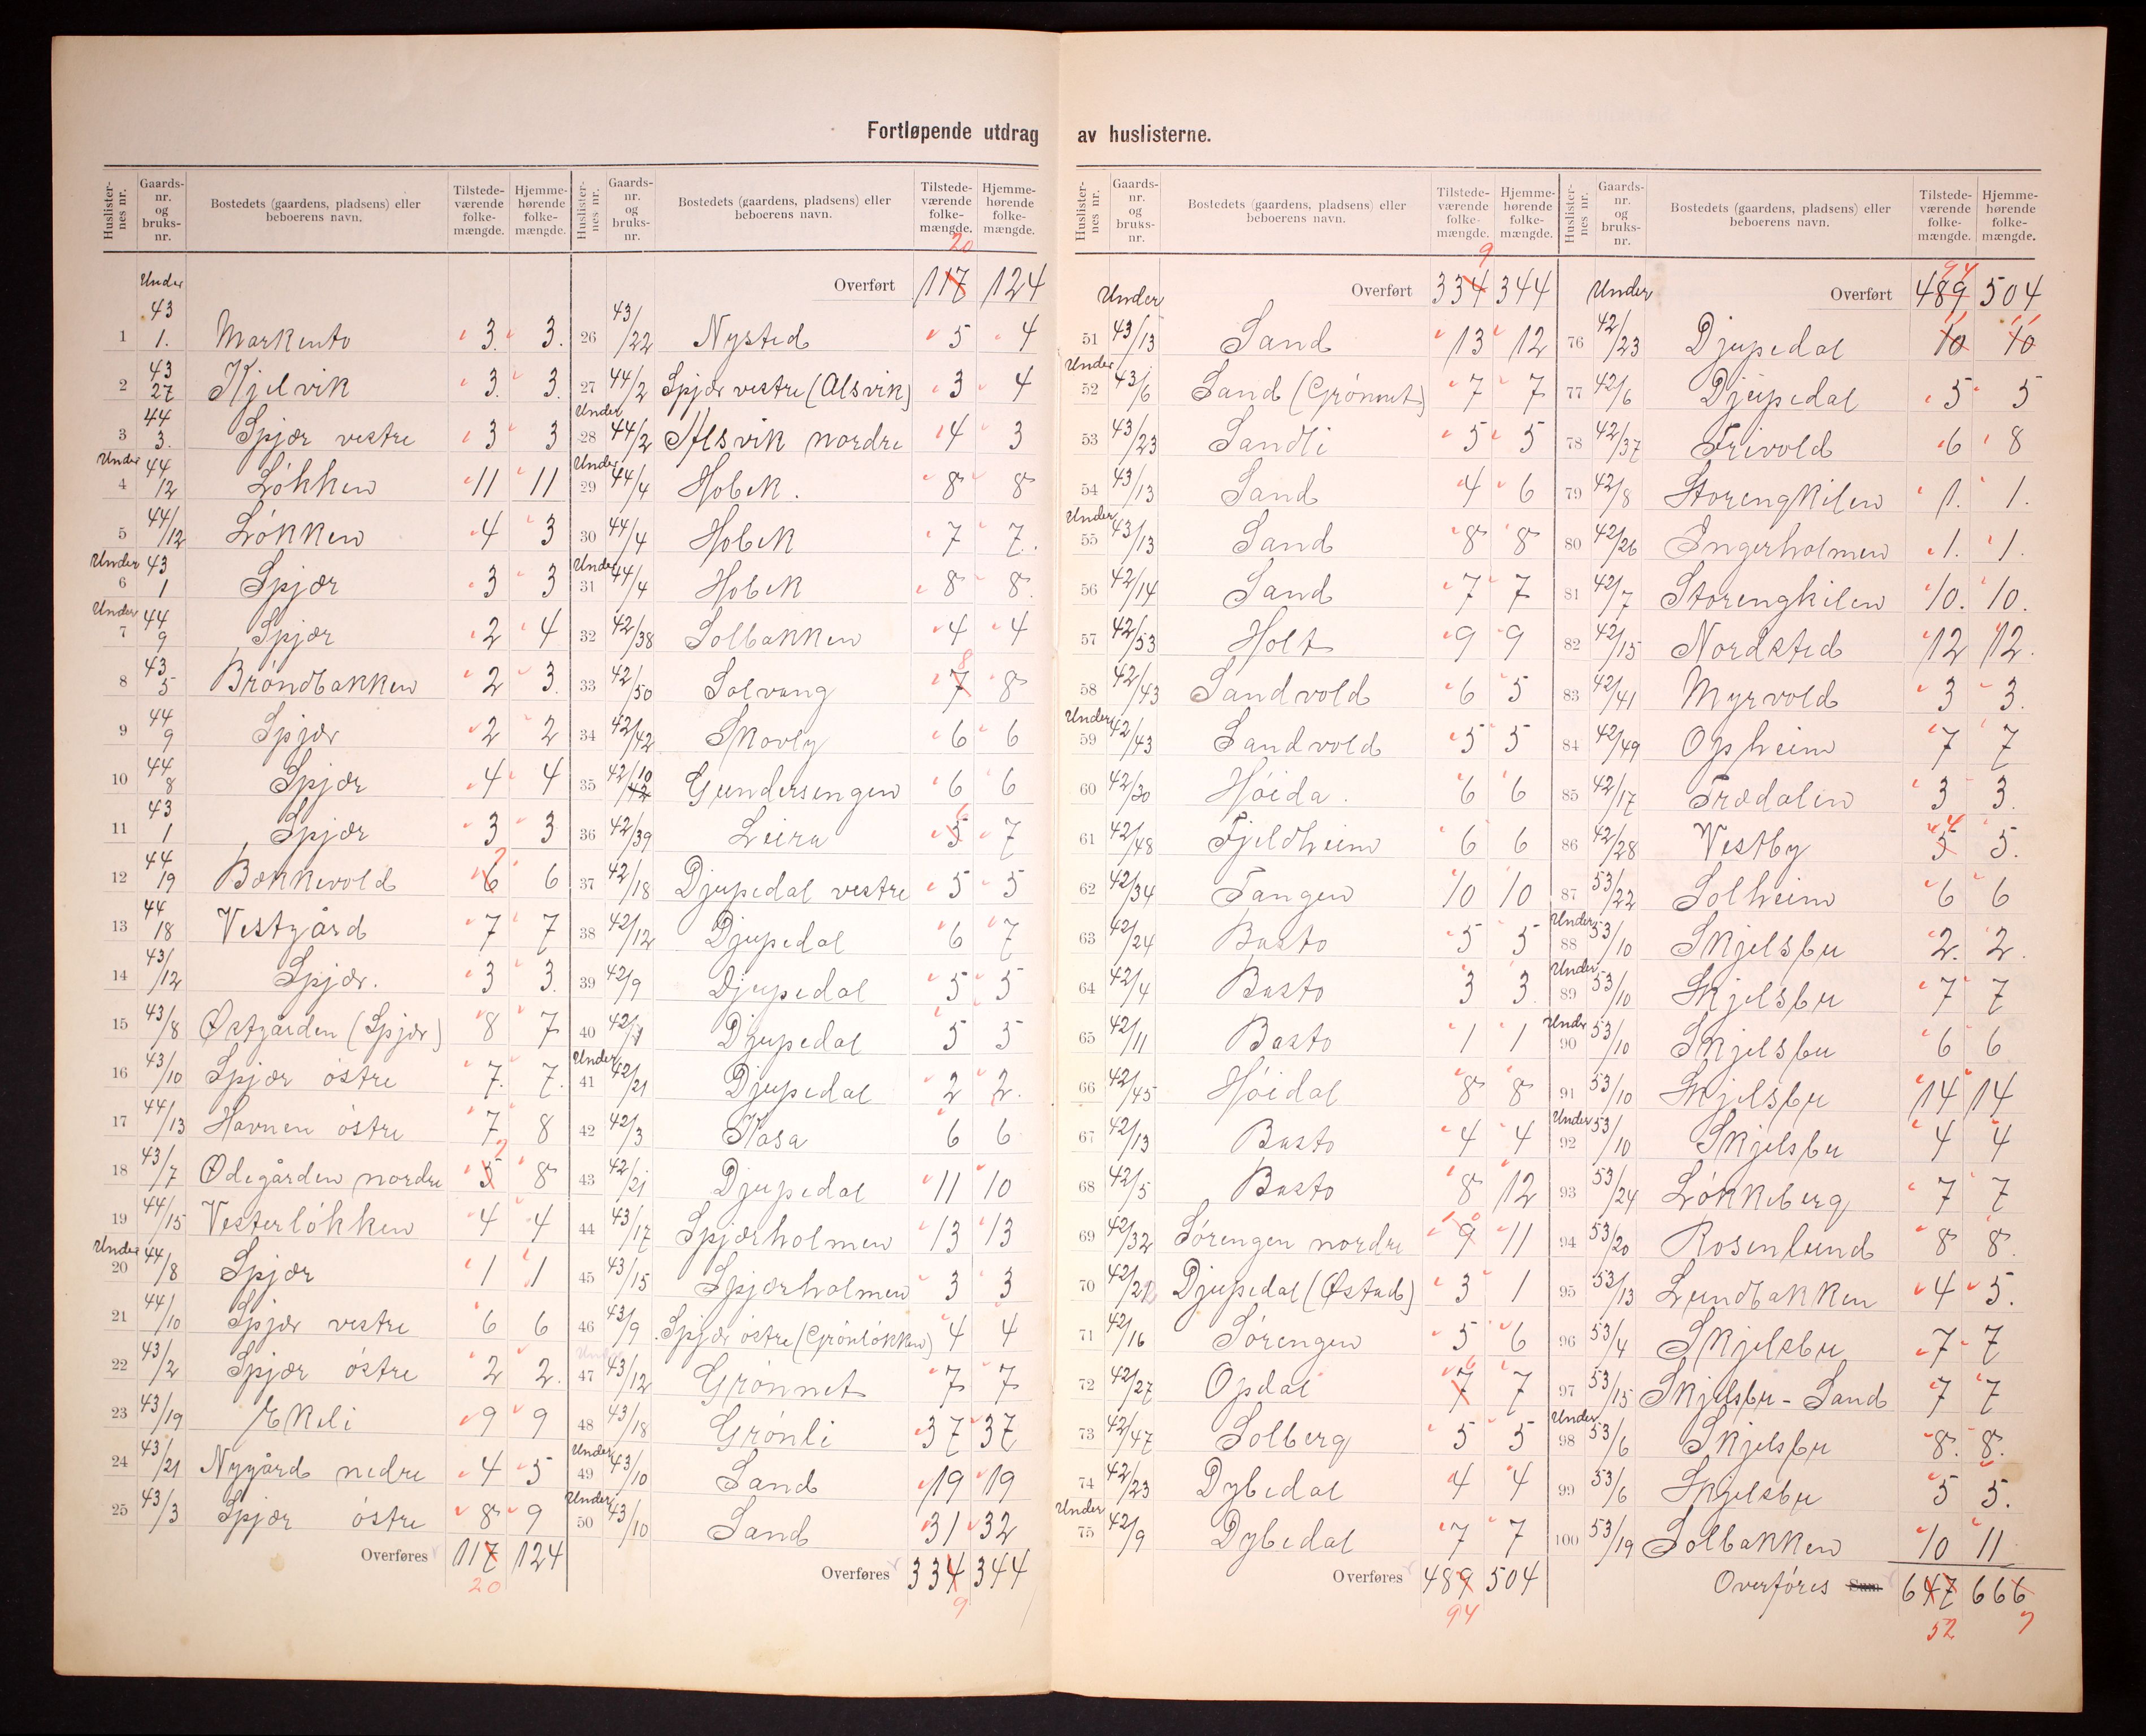 Fortløpende utdrag av huslisterne.
Huslister-nes nr. Gaards-nr. og bruks-nr. Bostedets (gaardens, pladsens) eller beboerens navn. Tilstede-værende folke-mængde. Hjemme-hørende folke-mængde.
Under
1 43/1. Markento 3. 3.
2 43/27 Kjelvik 3. 3.
3 44/3. Spjær vestre 3 3
4 Under 44/12 Løkken 11 11
5 44/12 Løkken 4 3
6 Under 43/1 Spjær 3 3
7 Under 44/9 Spjær 2 4
8 43/5 Brøndbakken 2 3.
9 44/9 Spjær 2 2
10 44/8 Spjær 4 4
11 43/1 Spjær 3 3
12 44/19 Bakkevold 6 7 6
13 44/18 Vestgård 7 7
14 43/12 Spjær. 3 3.
15 43/8 Østgården (Spjær) 8 7
16 43/10 Spjær østre 7. 7.
17 44/13 Havnen østre 7 8
18 43/7 Ødegården nordre 5 7 8
19 44/15 Vesterløkken 4 4
20 Under 44/8 Spjær 1 1
21 44/10 Spjær vestre 6 6
22 43/2 Spjær østre 2 2.
23 43/19 Ekeli 9 9
24 43/21 Nygård nedre 4 5
25 43/3 Spjær østre 8 9
Overføres 117 124
20
Huslister-nes nr. Gaards-nr. og bruks-nr. Bostedets (gaardens, pladsens) eller beboerens navn. Tilstede-værende folke-mængde. Hjemme-hørende folke-mængde.
20
Overført 117 124
26 43/22 Nysted 5 4
27 44/2 Spjær vestre (Alsvik) 3 4
28 Under 44/2 Alsvik nordre 4 3
29 Under 44/4 Hobek. 8 8
30 44/4 Hobek 7 7.
31 Under 44/4 Hobek 8 8.
32 42/38 Solbakken 4 4
33 42/50 Solvang 7 8 8
34 42/42 Skovly 6 6
35 42/10 42 Gundersengen 6 6
36 42/39 Leira 5 6 7
37 42/18 Djupedal vestre 5 5
38 42/12 Djupedal 6 7
39 42/9 Djupedal 5 5
40 42/1 Djupedal 5 5
41 Under 42/21 Djupedal 2 2.
42 42/3 Kasa 6 6
43 42/21 Djupedal 11 10
44 43/17 Spjærholmen 13 13
45 43/15 Spjærholmen 3 3
46 43/9 Spjær østre (Grønløkken) 4 4
47 Under 43/12 Grønnet 7 7
48 43/18 Grønli 37 37
49 Under 43/10 Sand 19 19
50 Under 43/10 Sand 31 32
Overføres 334 344
9
Huslister-nes nr. Gaards-nr. og bruks-nr. Bostedets (gaardens, pladsens) eller beboerens navn. Tilstede-værende folke-mængde. Hjemme-hørende folke-mængde.
9
Overført 334 344
51 Under 43/13 Sand 13 12
52 Under 43/6 Sand (Grønnet) 7 7
53 43/23 Sandli 5 5
54 43/13 Sand 4 6
55 Under 43/13 Sand 8 8
56 42/14 Sand 7 7
57 42/53 Holt 9 9
58 42/43 Sandvold 6 5
59 Under 42/43 Sandvold 5 5
60 42/30 Høida. 6 6
61 42/48 Fjeldheim 6 6
62 42/34 Tangen 10 10
63 42/24 Basto 5 5
64 42/4 Basto 3 3
65 42/11 Basto 1 1
66 42/45 Høidal 8 8
67 42/13 Basto 4 4
68 42/5 Basto 8 12
69 42/32 Sørengen nordre 9 10 11
70 42/21 Djupedal (Østad) 3 1
71 42/16 Sørengen 5 6
72 42/27 Opdal 7 6 7
73 42/47 Solberg 5 5
74 42/23 Dybedal 4 4
75 Under 42/9 Dybedal 7 7
Overføres 489 504
94
Huslister-nes nr. Gaards-nr. og bruks-nr. Bostedets (gaardens, pladsens) eller beboerens navn. Tilstede-værende folke-mængde. Hjemme-hørende folke-mængde.
94
Overført 489 504
76 Under 42/23 Djupedal 10 11 10 11
77 42/6 Djupedal 5 5
78 42/37 Frivold 6 8
79 42/8 Storengkilen 1. 1.
80 42/26 Ingerholmen 1. 1.
81 42/7 Storengkilen 10. 10.
82 42/15 Nordsted 12 12.
83 42/41 Myrvold 3 3.
84 42/49 Opheim 7 7
85 42/17 Trædalen 3 3.
86 42/28 Vestby 5 4 5.
87 53/22 Solheim 6 6
88 Under 53/10 Skjelsbu 2. 2.
89 Under 53/10 Skjelsbu 7 7
90 Under 53/10 Skjelsbu 6 6
91 53/10 Skjelsbu 14 14
92 Under 53/10 Skjelsbu 4 4
93 53/24 Løkkeberg 7 7
94 53/20 Rosenlund 8 8.
95 53/13 Lundbakken 4 5.
96 53/4 Skjelsbu 7 7
97 53/15 Skjelsbu - Sand 7 7
98 Under 53/6 Skjelsbu 8. 8.
99 53/6 Skjelsbu 5 5.
100 53/19 Solbakken 10 11
Overføres Sum 647 666
52 7